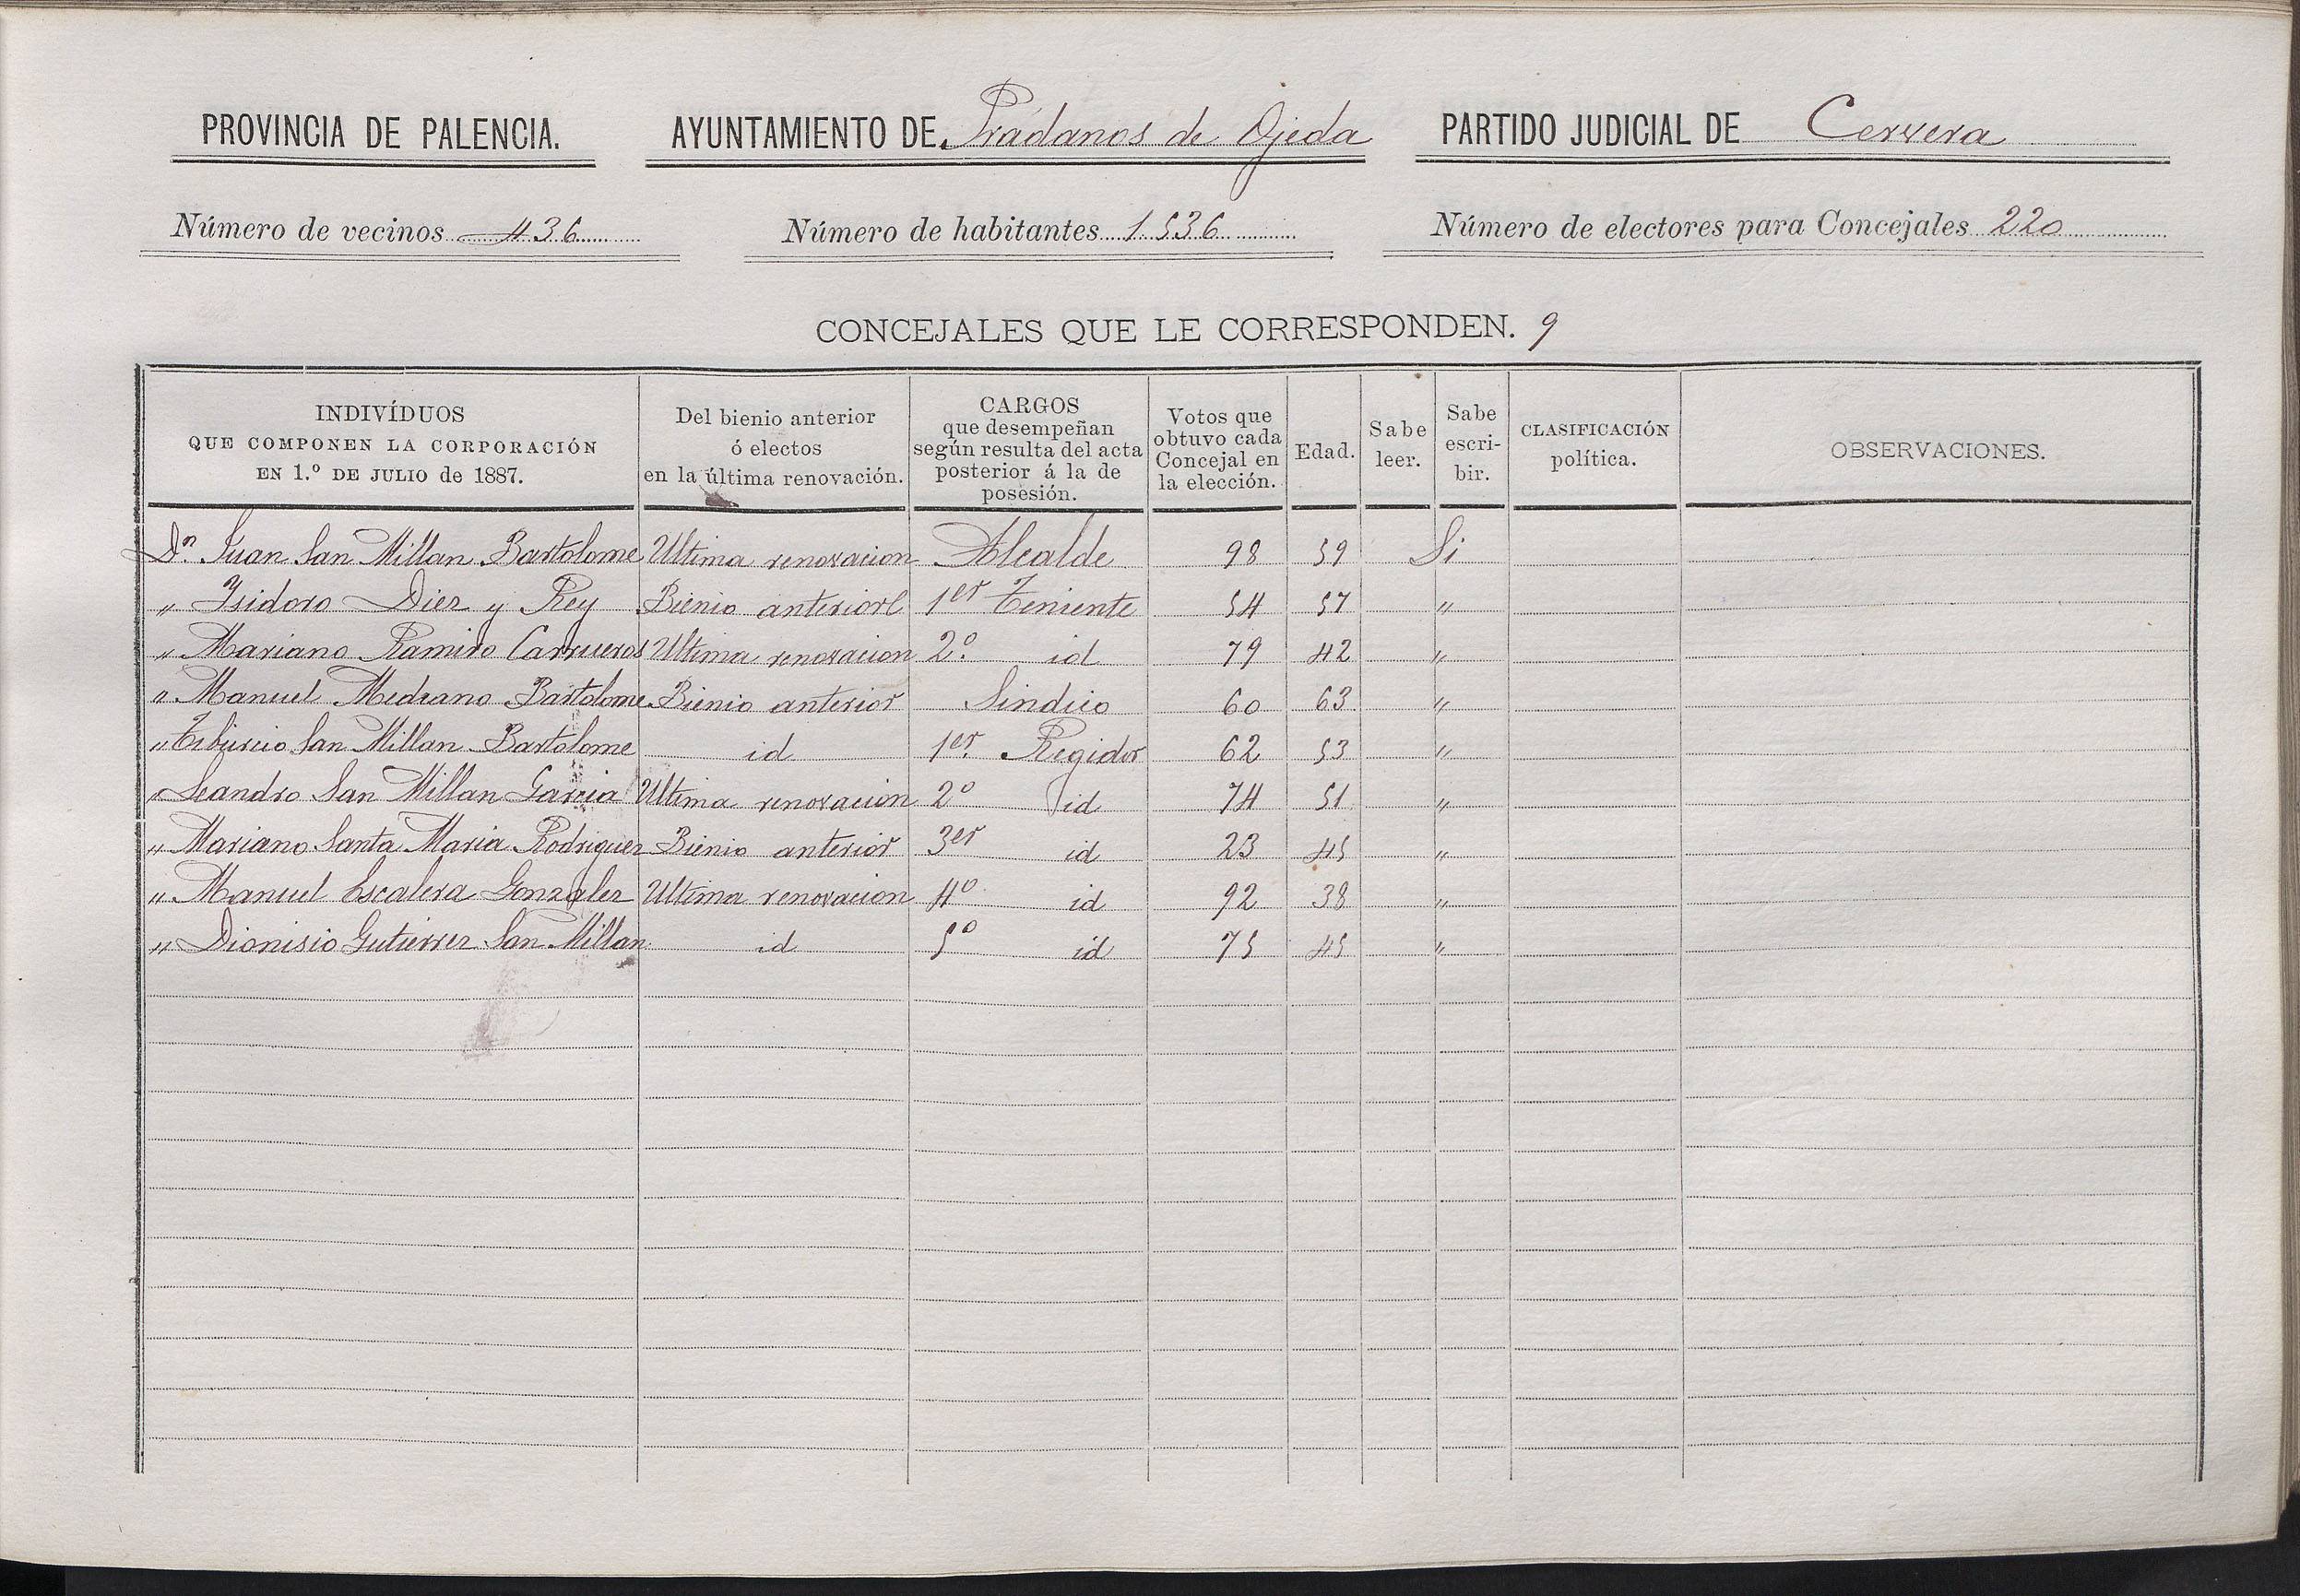 PROVINCIA DE PALENCIA. AYUNTAMIENTO DE Prádanos de Ojeda PARTIDO JUDICIAL DE Cervera
Número de vecinos 436 Número de habitantes 1536 Número de electores para Concejales 220
CONCEJALES QUE LE CORRESPONDEN. 9
INDIVÍDUOS
QUE COMPONEN LA CORPORACIÓN
EN 1.º DE JULIO de 1887.
Del bienio anterior
ó electos
en la última renovación.
CARGOS
que desempeñan
según resulta del acta
posterior á la de
posesión.
Votos que
obtuvo cada
Concejal en
la elección.
Edad.
Sabe
leer.
Sabe
escri-
bir.
CLASIFICACIÓN
política.
OBSERVACIONES.
Dn. Juan San Millan Bartolome Ultima renovacion Alcalde 98 59 Si
" Isidoro Diez y Rey Bienio anterior 1er Teniente 54 57 "
" Mariano Ramiro Ultima renovacion 2º. id 79 42 "
" Manuel Medrano Bartolome Bienio anterior Sindico 60 63 "
" Tiburcio San Millan Bartolome id 1er. Regidor 62 53 "
" Leandro San Millan Garcia Ultima renovacion 2º id 74 51 "
" Mariano Santa Maria Rodriguez Bienio anterior 3er id 23 45 "
" Manuel Escalera Gonzalez Ultima renovacion 4º id 92 38 "
" Dionisio Gutierrez San Millan id 5º id 75 45 "